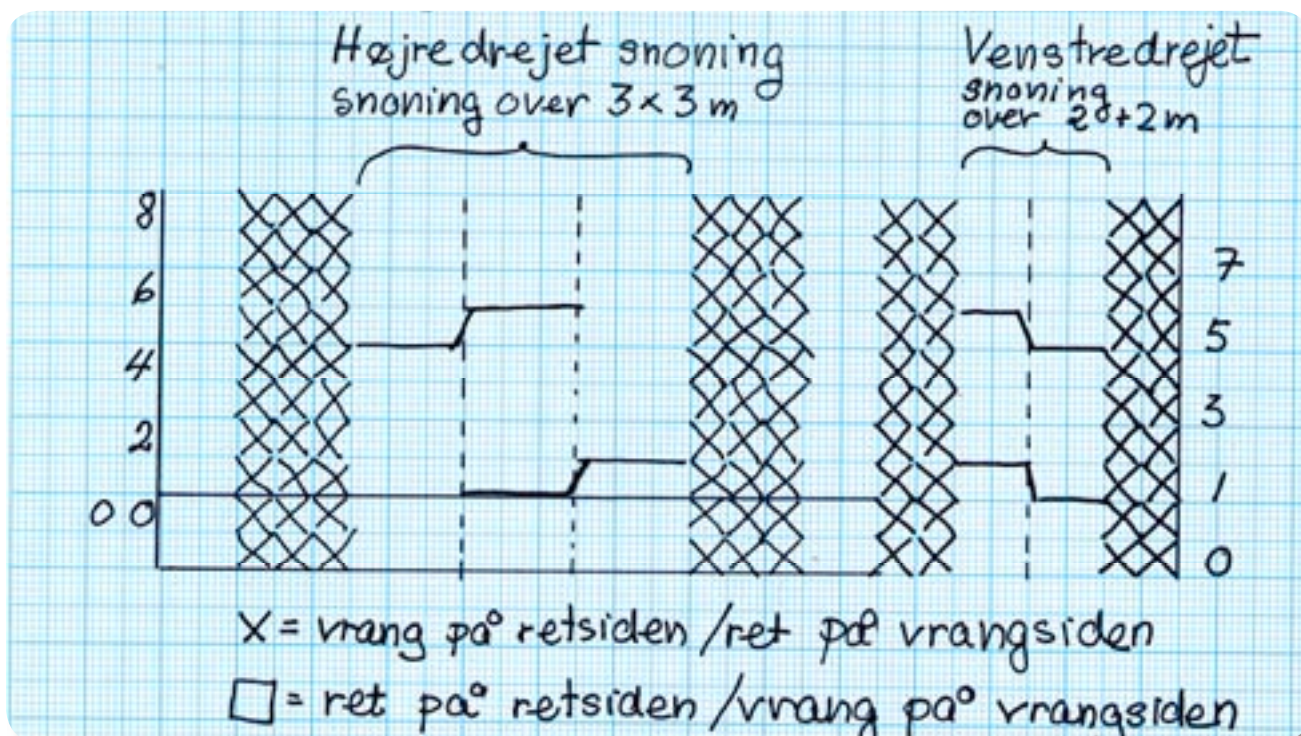 Højredrejet snoning
snoning over 3×3 m
Venstredrejet
snoning
over 2+2 m
8
6
4
2
0 0
7
5
3
1
0
X = vrang på retsiden / ret på vrangsiden
□ = ret på retsiden / vrang på vrangsiden